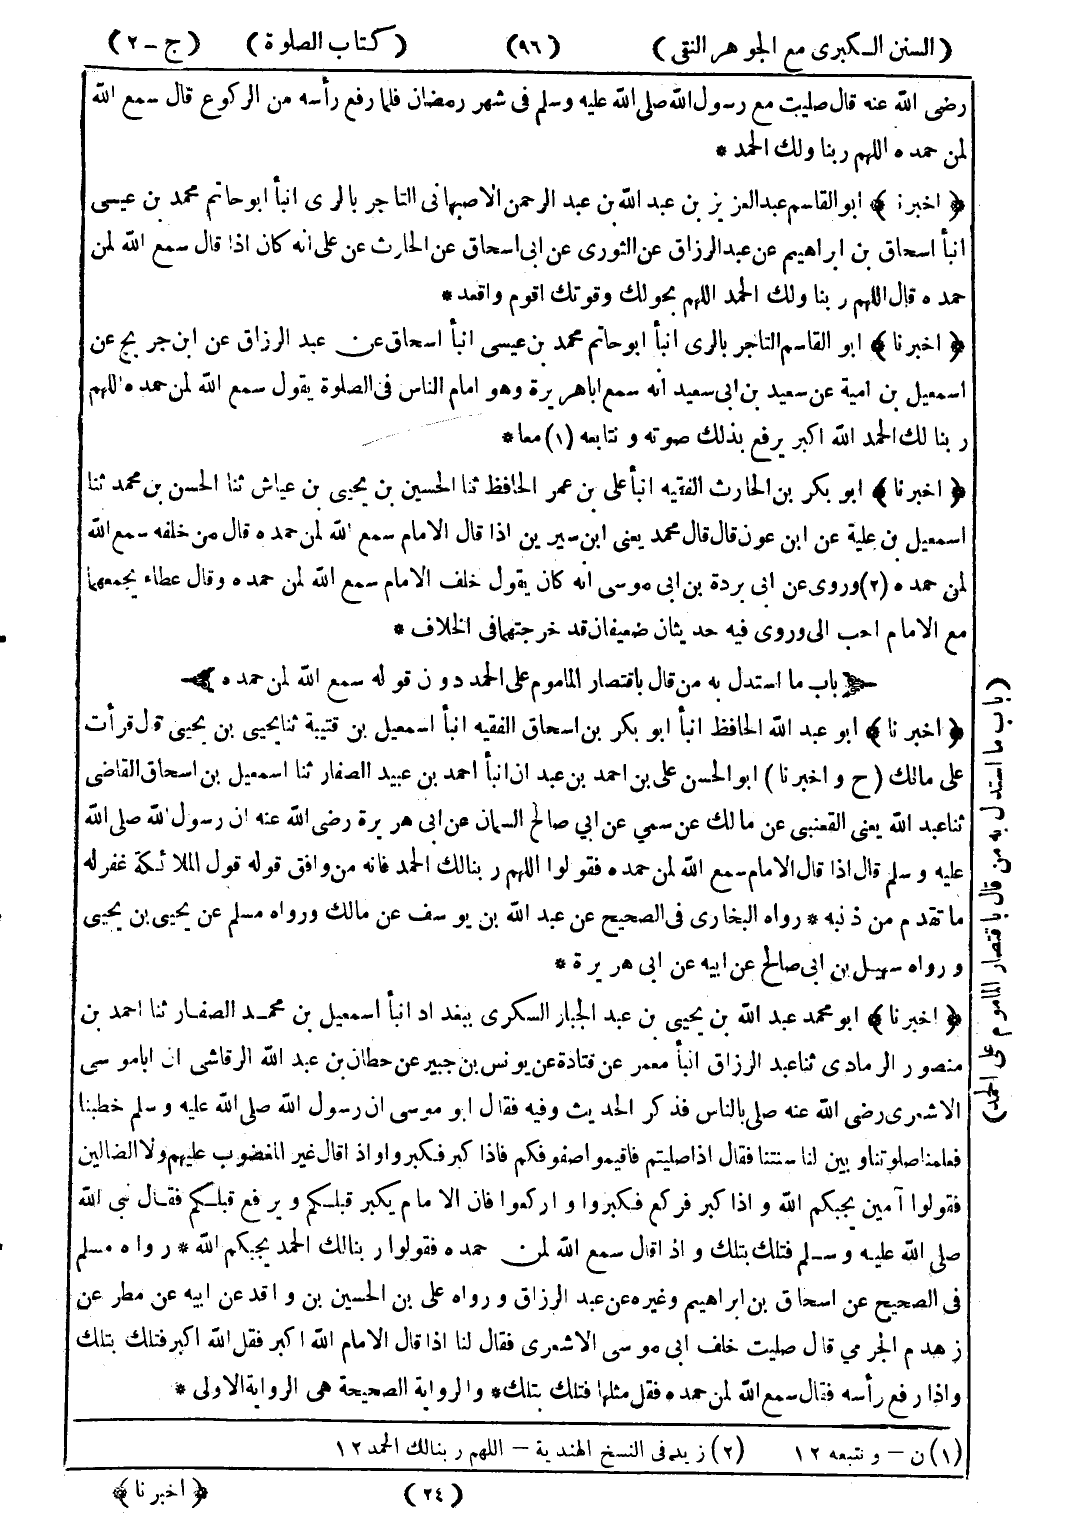 (السنن الكبرى مع الجوهر النقى) (٩٦) (كتاب الصلوة) (ج - ٢)
رضى الله عنه قال صليت مع رسول الله صلى الله عليه وسلم فى شهر رمضان فلما رفع رأسه من الركوع قال سمع الله
لمن حمده اللهم ربنا ولك الحمد *
﴿ اخبرنا ﴾ ابو القاسم عبد العزيز بن عبد الله بن عبد الرحمن الاصبهانى التاجر بالرى انبأ ابو حاتم محمد بن عيسى
انبأ اسحاق بن ابراهيم عن عبد الرزاق عن الثورى عن ابى اسحاق عن الحارث عن على انه كان اذا قال سمع الله لمن
حمده قال اللهم ربنا ولك الحمد اللهم بحولك وقوتك اقوم واقعد *
﴿ اخبرنا ﴾ ابو القاسم التاجر بالرى انبأ ابو حاتم محمد بن عيسى انبأ اسحاق عن عبد الرزاق عن ابن جريج عن
اسمعيل بن امية عن سعيد بن ابى سعيد انه سمع اباهريرة وهو امام الناس فى الصلوة يقول سمع الله لمن حمده اللهم
ربنا لك الحمد الله اكبر يرفع بذلك صوته ونتابعه (١) معا *
﴿ اخبرنا ﴾ ابو بكر بن الحارث الفقيه انبأ على بن عمر الحافظ ثنا الحسين بن يحيى بن عياش ثنا الحسن بن محمد ثنا
اسمعيل بن علية عن ابن عون قال قال محمد يعنى ابن سيرين اذا قال الامام سمع الله لمن حمده قال من خلفه سمع الله
لمن حمده (٢) وروى عن ابى بردة بن ابى موسى انه كان يقول خلف الامام سمع الله لمن حمده وقال عطاء يجمعهما
مع الامام احب الى وروى فيه حديثان ضعيفان قد خرجتهما فى الخلاف *
باب ما استدل به من قال باقتصار الماموم على الحمد دون قوله سمع الله لمن حمده
﴿ اخبرنا ﴾ ابو عبد الله الحافظ انبأ ابو بكر بن اسحاق الفقيه انبأ اسمعيل بن قتيبة ثنا يحيى بن يحيى قال قرأت
على مالك (ح واخبرنا) ابو الحسن على بن احمد بن عبدان انبأ احمد بن عبيد الصفار ثنا اسمعيل بن اسحاق القاضى
ثنا عبد الله يعنى القعنبى عن مالك عن سمي عن ابي صالح السمان عن ابى هريرة رضى الله عنه ان رسول الله صلى الله
عليه وسلم قال اذا قال الامام سمع الله لمن حمده فقولوا اللهم ربنا لك الحمد فانه من وافق قوله قول الملائكة غفر له
ما تقدم من ذنبه * رواه البخارى فى الصحيح عن عبد الله بن يوسف عن مالك ورواه مسلم عن يحيى بن يحيى
ورواه سهيل بن ابى صالح عن ابيه عن ابى هريرة *
﴿ اخبرنا ﴾ ابو محمد عبد الله بن يحيى بن عبد الجبار السكرى ببغداد انبأ اسمعيل بن محمد الصفار ثنا احمد بن
منصور الرمادى ثنا عبد الرزاق انبأ معمر عن قتادة عن يونس بن جبير عن حطان بن عبد الله الرقاشى ان ابا موسى
الاشعرى رضى الله عنه صلى بالناس فذكر الحديث وفيه فقال ابو موسى ان رسول الله صلى الله عليه وسلم خطبنا
فعلمنا صلوتنا وبين لنا سنتنا فقال اذا صليتم فاقيموا صفوفكم فاذا كبر فكبروا واذا قال غير المغضوب عليهم ولا الضالين
فقولوا آمين يجبكم الله واذا كبر فركع فكبروا واركعوا فان الامام يكبر قبلكم ويرفع قبلكم فقال نبى الله
صلى الله عليه وسلم فتلك بتلك واذا قال سمع الله لمن حمده فقولوا ربنا لك الحمد يجبكم الله * رواه مسلم
فى الصحيح عن اسحاق بن ابراهيم وغيره عن عبد الرزاق ورواه على بن الحسين بن واقد عن ابيه عن مطر عن
زهدم الجرمي قال صليت خلف ابى موسى الاشعرى فقال لنا اذا قال الامام الله اكبر فقل الله اكبر فتلك بتلك
واذا رفع رأسه فقال سمع الله لمن حمده فقل مثلها فتلك بتلك * والرواية الصحيحة هى الرواية الاولى *
(باب ما استدل به من قال باقتصار الماموم على الحمد)
(١) ن - ونتبعه ١٢ (٢) زيد فى النسخ الهندية - اللهم ربنا لك الحمد ١٢
(٢٤) ﴿ اخبرنا ﴾